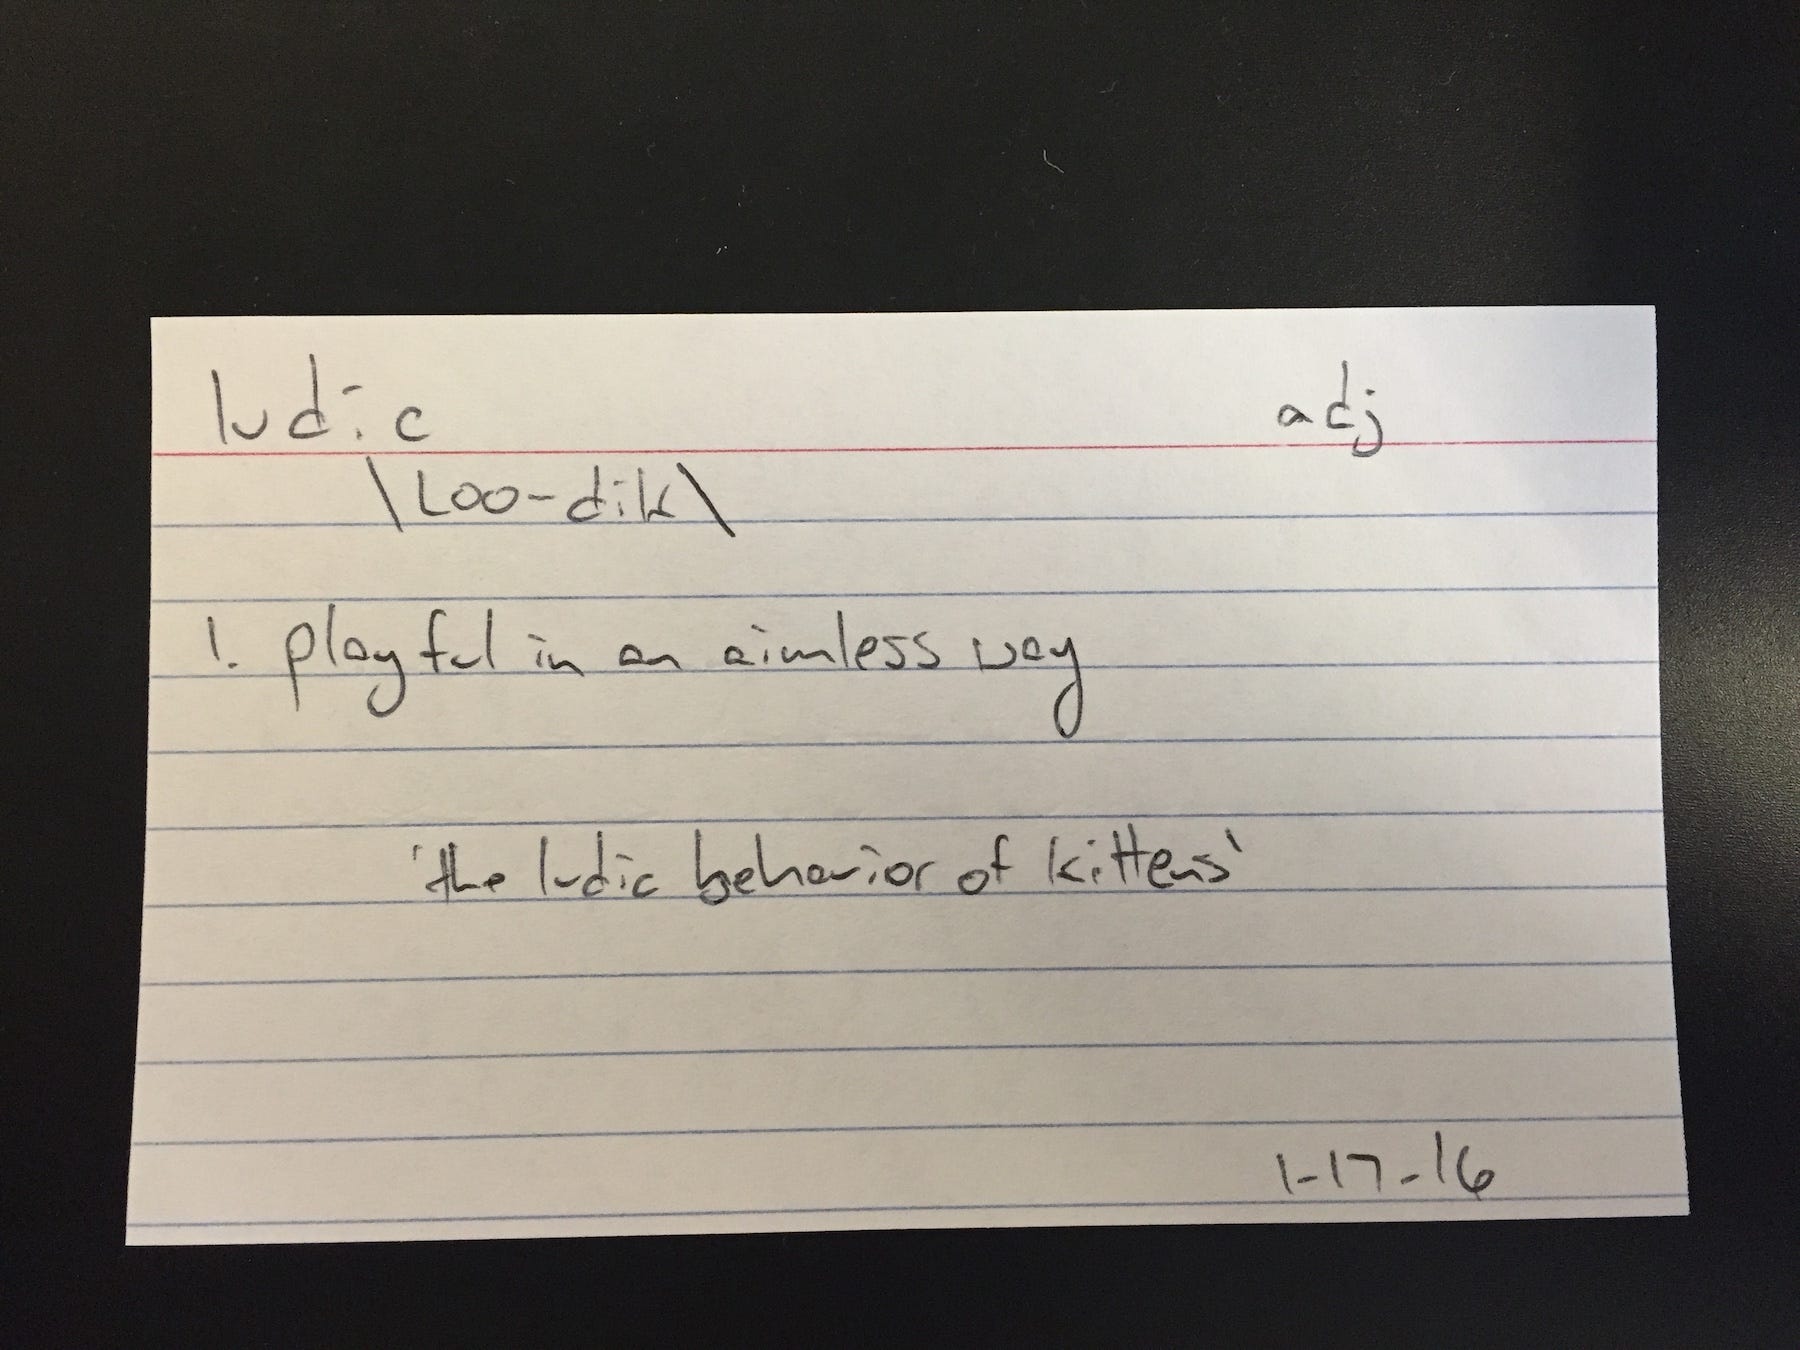 ludic adj
\Loo-dik\
1. playful in an aimless way
'the ludic behavior of kittens'
1-17-16